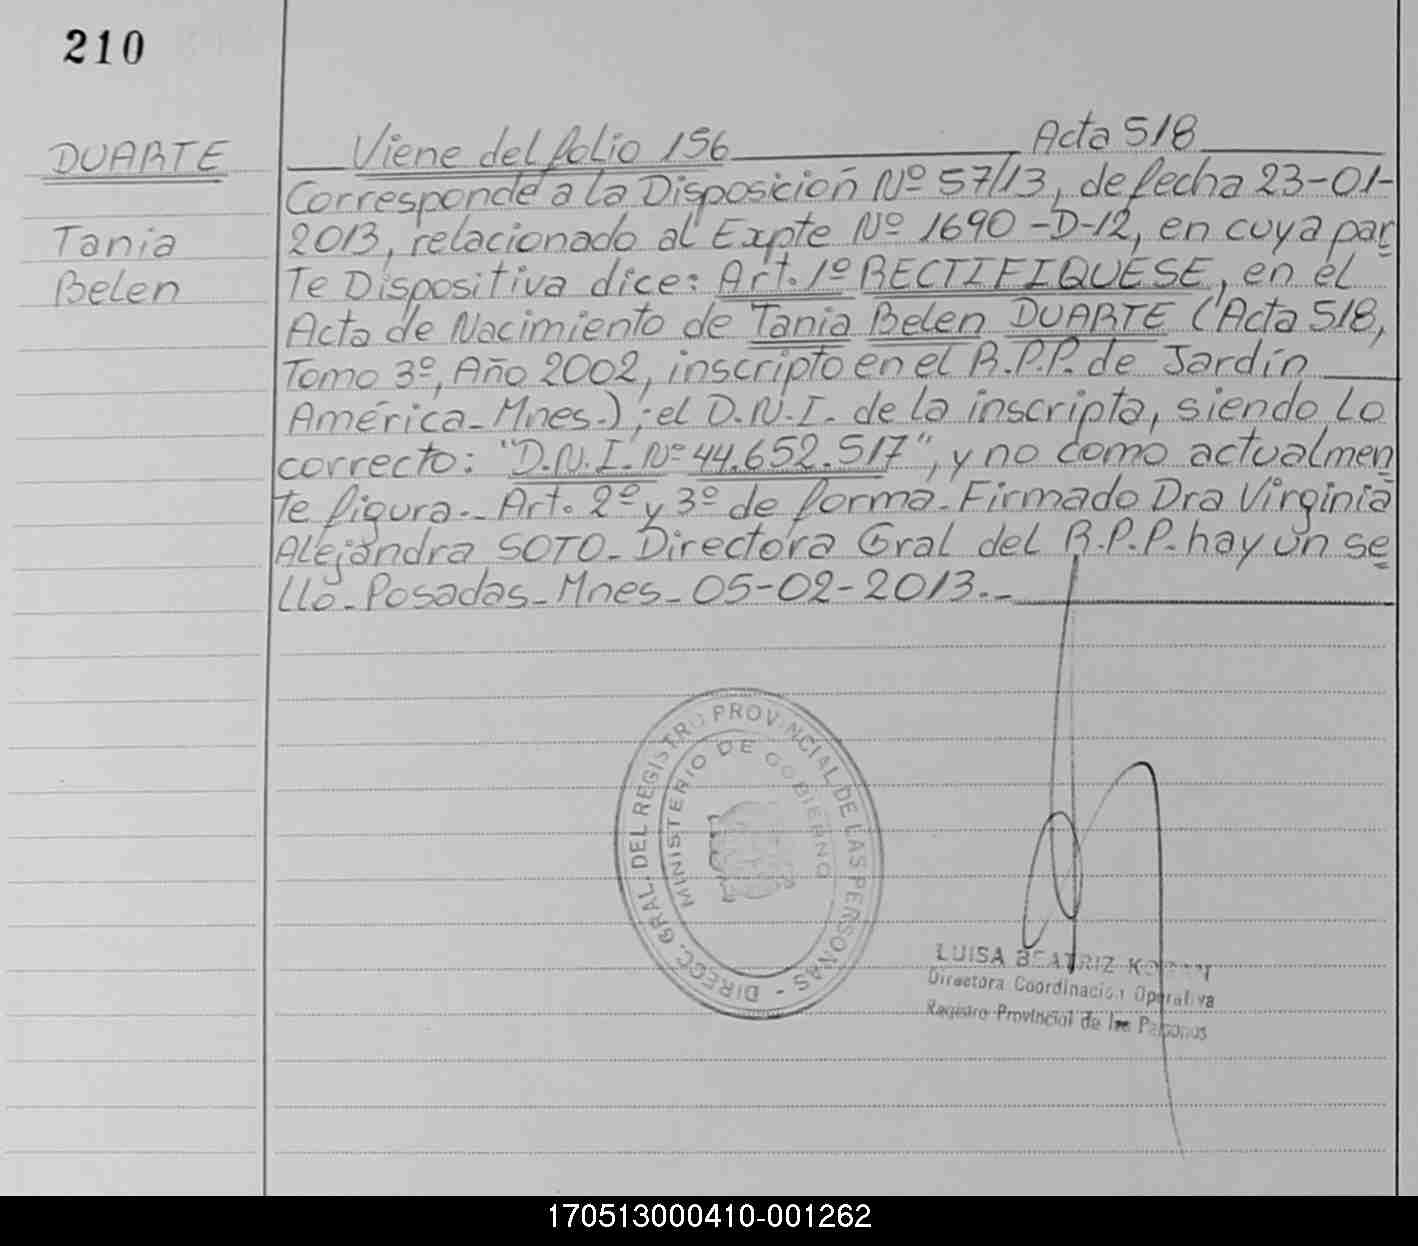 210
DUARTE
Tania
Belen
Viene del folio 156 Acta 518
Corresponde a la Disposición Nº 57/13, de fecha 23-01-
2013, relacionado al Expte Nº 1690-D-12, en cuya par
te Dispositiva dice: Art. 1º RECTIFIQUESE, en el
Acta de Nacimiento de Tania Belen DUARTE (Acta 518,
Tomo 3º, Año 2002, inscripto en el R.P.P. de Jardín
América-Mnes.); el D.N.I. de la inscripta, siendo lo
correcto: "D.N.I. Nº 44.652.517", y no como actualmen
te figura.- Art. 2º y 3º de forma. Firmado Dra Virginia
Alejandra SOTO- Directora Gral del R.P.P. hay un se
llo- Posadas- Mnes- 05-02-2013.-
DIRECC. GRAL. DEL REGISTRO PROVINCIAL DE LAS PERSONAS -
MINISTERIO DE GOBIERNO
LUISA BEATRIZ
Directora Coordinación Operativa
Registro Provincial de las Personas
170513000410-001262